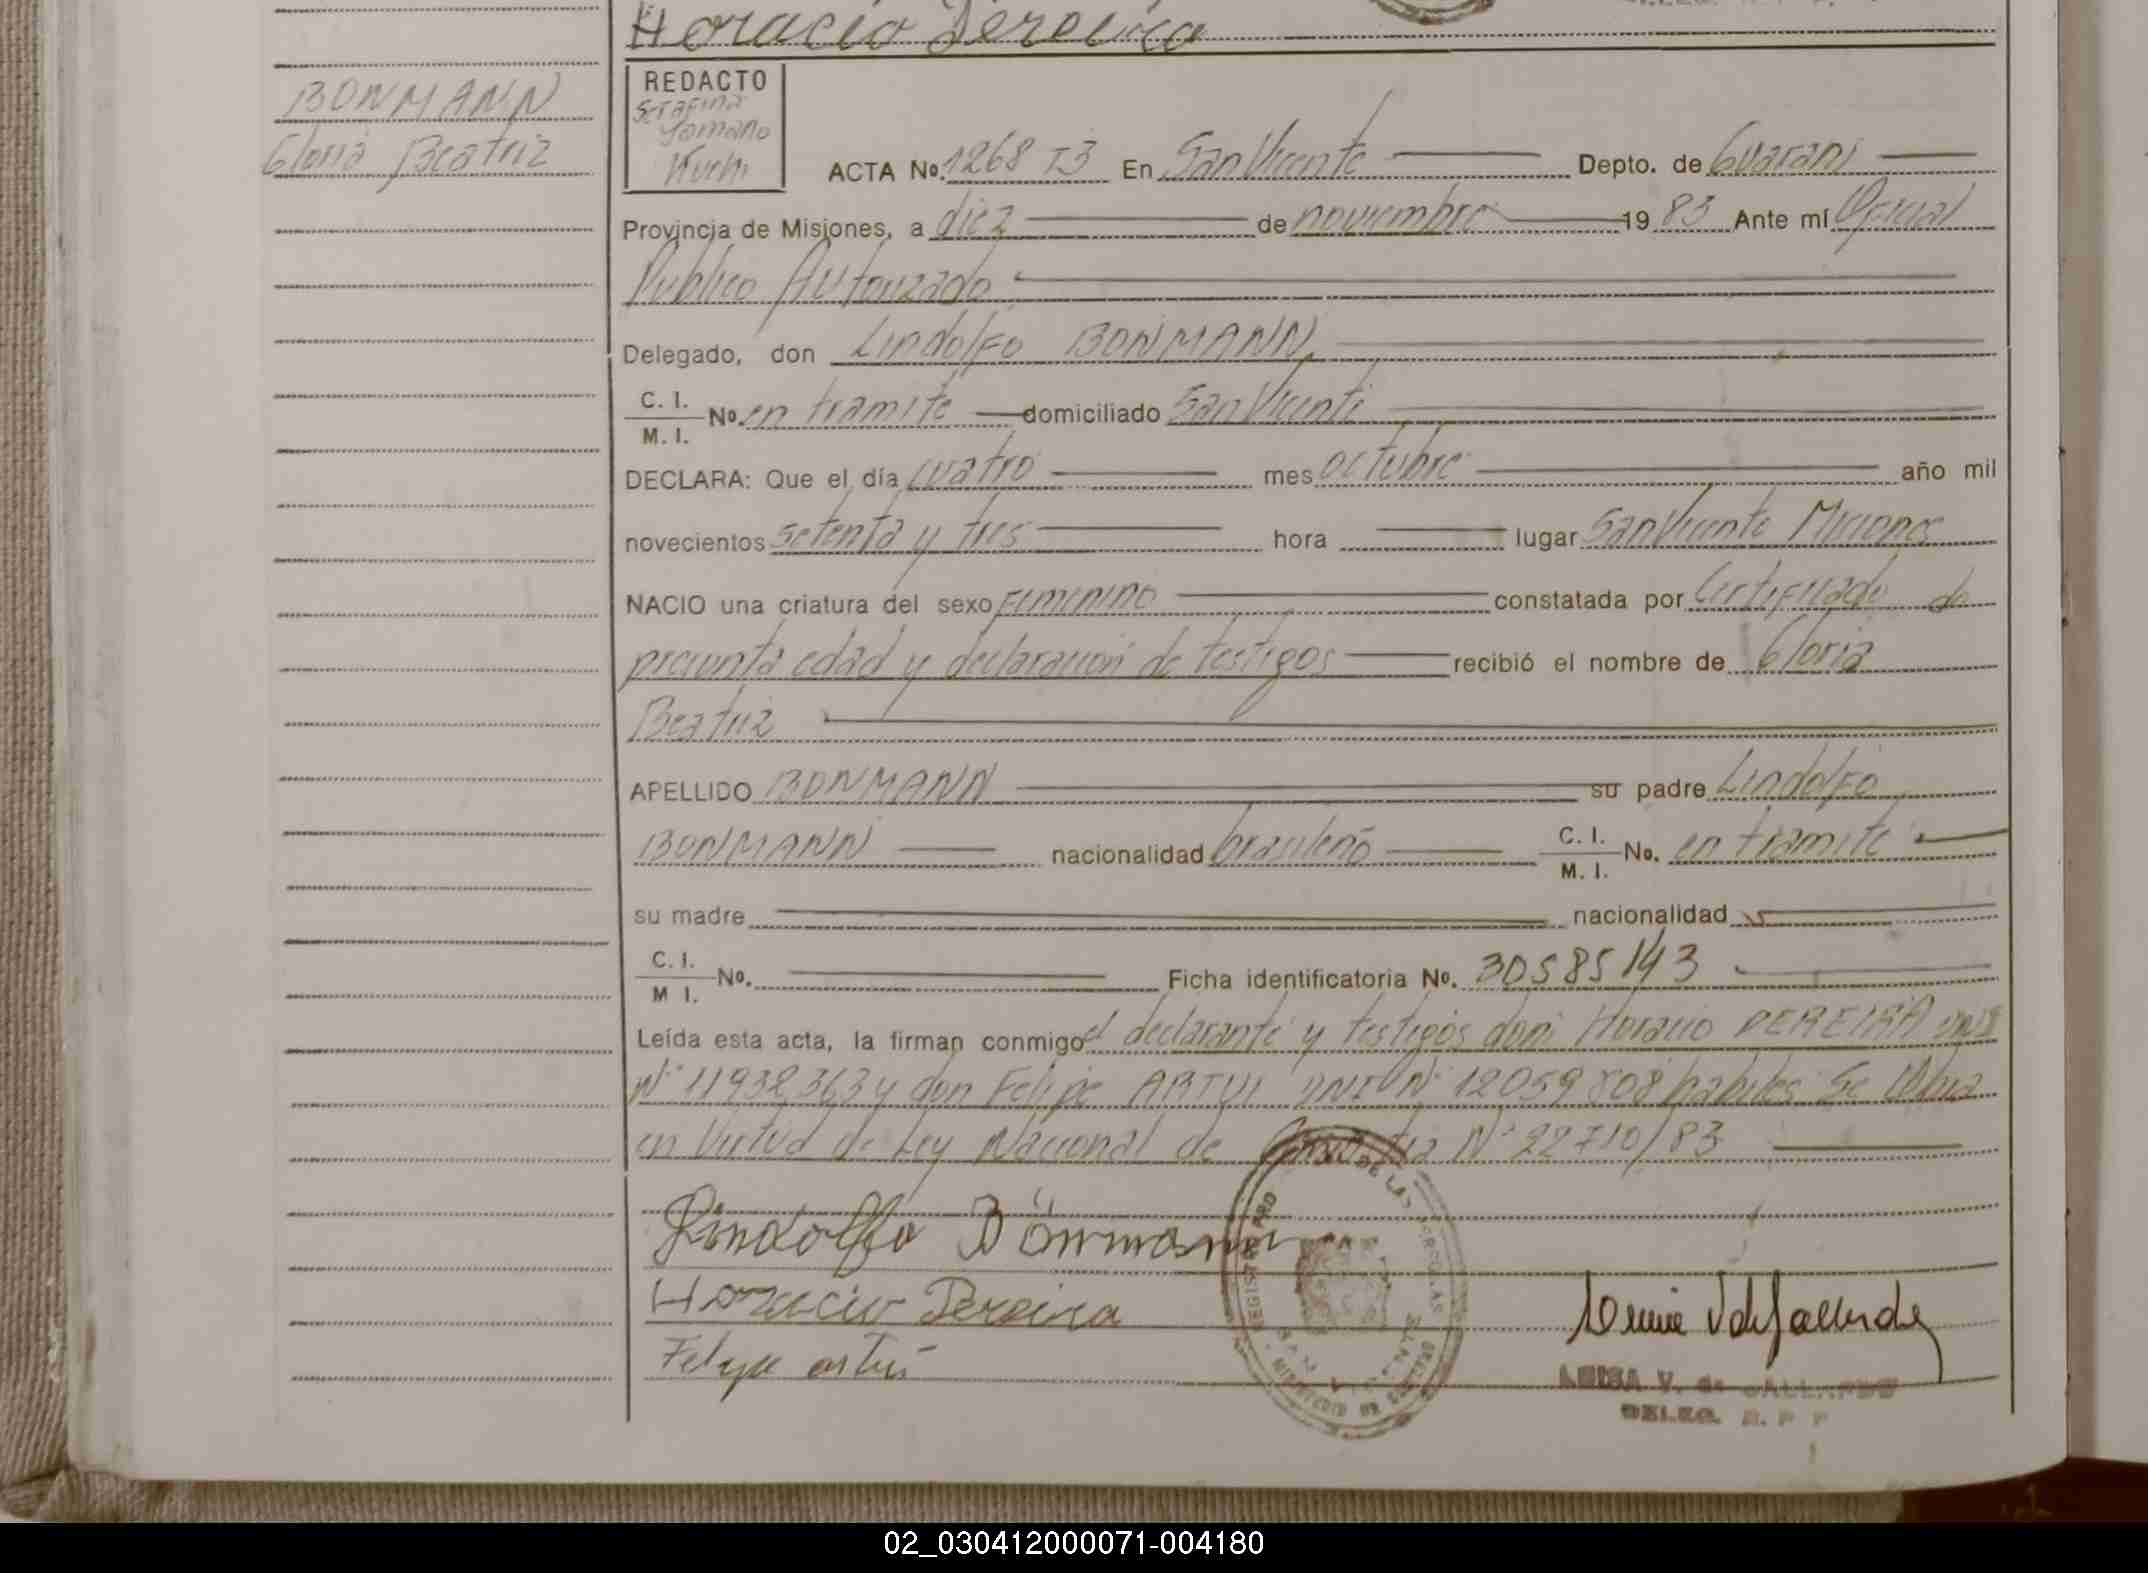 Horacio Pereira
BONMANN
Gloria Beatriz
REDACTO
Serafina
ACTA No. 1268 T3 En San Vicente Depto. de Guarani
Provincia de Misiones, a diez de noviembre 1983 Ante mí Oficial
Publico Autorizado
Delegado, don Lindolfo BONMANN
C. I.
M. I. No. en tramite domiciliado San Vicente
DECLARA: Que el día cuatro mes octubre año mil
novecientos setenta y tres hora lugar San Vicente Misiones
NACIO una criatura del sexo Femenino constatada por Certificado de
presunta edad y declaracion de testigos recibió el nombre de Gloria
Beatriz
APELLIDO BONMANN su padre Lindolfo
BONMANN nacionalidad brasileño C. I.
M. I. No. en tramite
su madre nacionalidad
C. I.
M I. No. Ficha identificatoria No. 30585143
Leída esta acta, la firman conmigo el declarante y testigos don Horacio PEREIRA DNI
Nº 11938363 y don Felipe ARTUI DNI Nº 12059808 habiles Se
en Virtud de Ley Nacional de Amnistia Nº 22710/83
Lindolfo Bönmann
Horacio Pereira
Felipe
LUISA V. de GALLARDO
DELEG. R. P. P
02_030412000071-004180